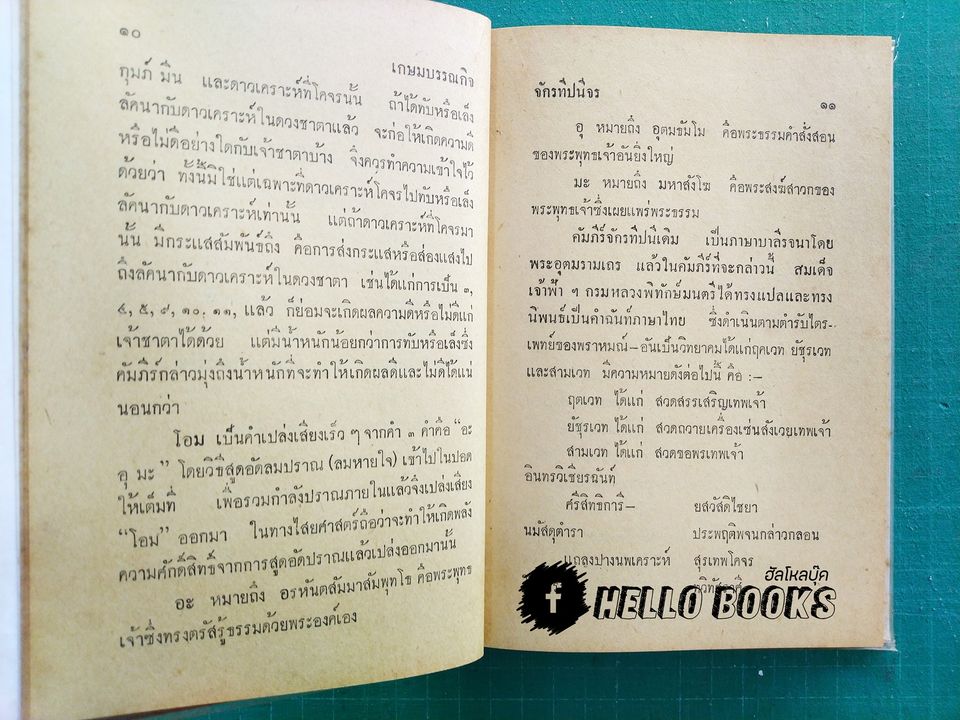 ๑๐
เกษมบรรณกิจ
กุมภ์ มีน และดาวเคราะห์ที่โคจรนั้น ถ้าได้ทับหรือเล็ง
ลัคนากับดาวเคราะห์ในดวงชาตาแล้ว จะก่อให้เกิดความดี
หรือไม่ดีอย่างใดกับเจ้าชาตาบ้าง จึงควรทำความเข้าใจไว้
ด้วยว่า ทั้งนี้มิใช่แต่เฉพาะที่ดาวเคราะห์โคจรไปทับหรือเล็ง
ลัคนากับดาวเคราะห์เท่านั้น แต่ถ้าดาวเคราะห์ที่โคจรมา
นั้น มีกระแสสัมพันธ์ถึง คือการส่งกระแสหรือส่องแสงไป
ถึงลัคนากับดาวเคราะห์ในดวงชาตา เช่นได้แก่การเป็น ๓,
๔, ๕, ๙, ๑๐. ๑๑, แล้ว ก็ย่อมจะเกิดผลความดีหรือไม่ดีแก่
เจ้าชาตาได้ด้วย แต่มีน้ำหนักน้อยกว่าการทับหรือเล็งซึ่ง
คัมภีร์กล่าวมุ่งถึงน้ำหนักที่จะทำให้เกิดผลดีและไม่ดีได้แน่
นอนกว่า
โอม เป็นคำเปล่งเสียงเร็ว ๆ จากคำ ๓ คำคือ “อะ
อุ มะ” โดยวิธีสูดอัดลมปราณ (ลมหายใจ) เข้าไปในปอด
ให้เต็มที่ เพื่อรวมกำลังปราณภายในแล้วจึงเปล่งเสียง
“โอม” ออกมา ในทางไสยศาสตร์ถือว่าจะทำให้เกิดพลัง
ความศักดิ์สิทธิ์จากการสูดอัดปราณแล้วเปล่งออกมานั้น
อะ หมายถึง อรหันตสัมมาสัมพุทโธ คือพระพุทธ
เจ้าซึ่งทรงตรัสรู้ธรรมด้วยพระองค์เอง
จักรทีปนีจร
๑๑
อุ หมายถึง อุตมธัมโม คือพระธรรมคำสั่งสอน
ของพระพุทธเจ้าอันยิ่งใหญ่
มะ หมายถึง มหาสังโฆ คือพระสงฆ์สาวกของ
พระพุทธเจ้าซึ่งเผยแพร่พระธรรม
คัมภีร์จักรทีปนีเดิม เป็นภาษาบาลีรจนาโดย
พระอุตมรามเถร แล้วในคัมภีร์ที่จะกล่าวนี้ สมเด็จ
เจ้าฟ้า ฯ กรมหลวงพิทักษ์มนตรีได้ทรงแปลและทรง
นิพนธ์เป็นคำฉันท์ภาษาไทย ซึ่งดำเนินตามตำรับไตร-
เพทย์ของพราหมณ์-อันเป็นวิทยาคมได้แก่ฤคเวท ยัชุรเวท
และสามเวท มีความหมายดังต่อไปนี้ คือ :-
ฤตเวท ได้แก่ สวดสรรเสริญเทพเจ้า
ยัชุรเวท ได้แก่ สวดถวายเครื่องเซ่นสังเวยเทพเจ้า
สามเวท ได้แก่ สวดขอพรเทพเจ้า
อินทรวิเชียรฉันท์
ศรีสิทธิการี- ยสวัสดิไชยา
นมัสดุตำรา ประพฤติพจนกล่าวกลอน
แถลงปางนพเคราะห์ สุรเทพโคจร
ฮัลโหลบุ๊ค
f HELLO BOOKS